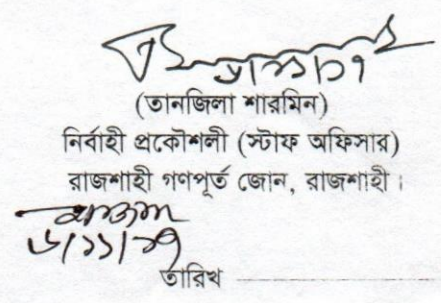 ৬/১১/১৭
(তানজিলা শারমিন)
নির্বাহী প্রকৌশলী (স্টাফ অফিসার)
রাজশাহী গণপূর্ত জোন, রাজশাহী।
৬/১১/১৭
তারিখ